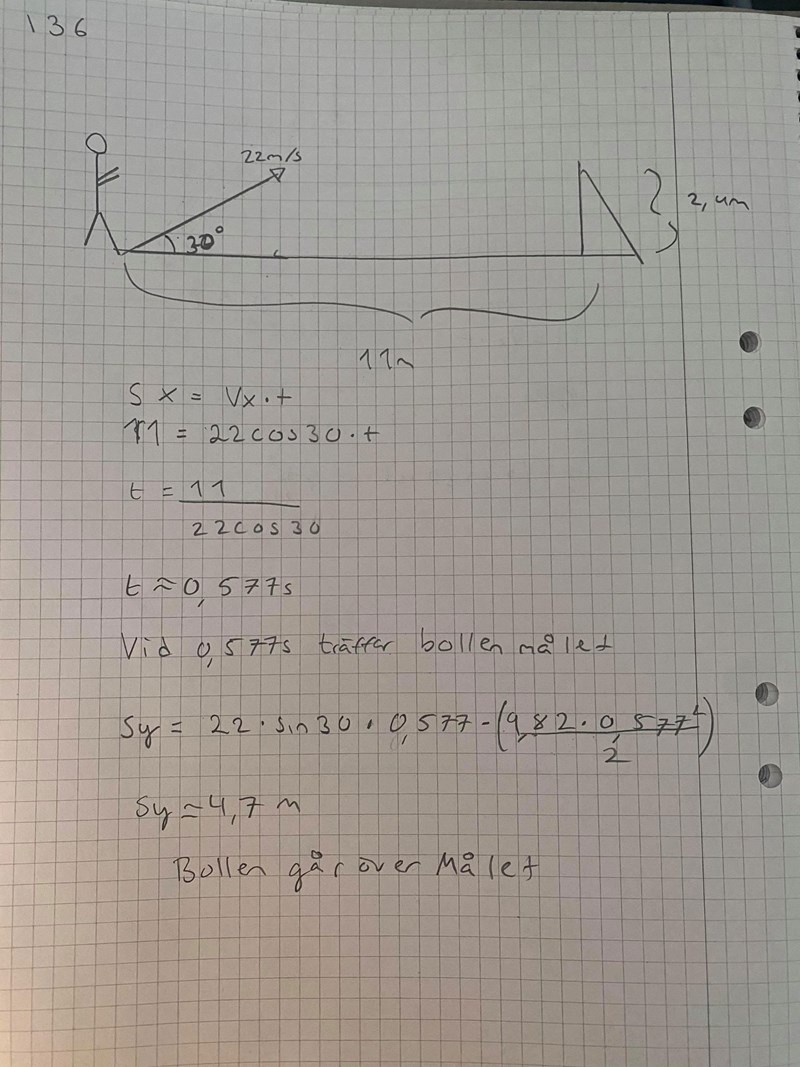 136
22m/s
30°
2,4m
11m
Sx = Vx·t
11 = 22cos30·t
t = 11
22cos30
t ≈ 0,577s
Vid 0,577s träffar bollen målet
Sy = 22·sin30·0,577-(9,82·0,577²)
2
Sy ≈ 4,7 m
Bollen går över Målet